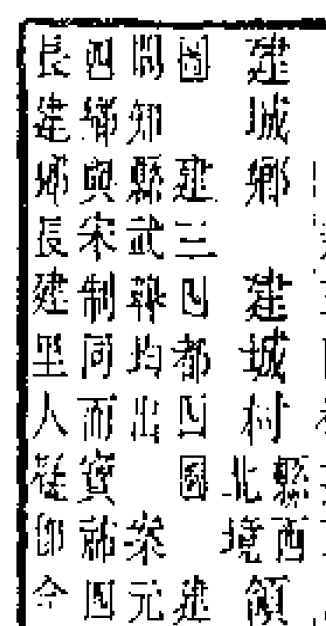 建城鄉 建城村縣西北境領
圖 建三四都四圖 建
問知縣武均出 案元
四鄉與宋制同而寶祐四
長建鄉長建里人卽今